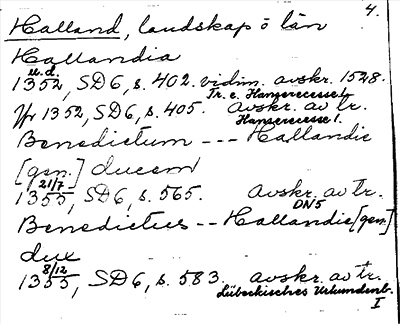 4.
Halland, landskap o län
Hallandia
u.d.
1352, SD6, s. 402. vidim. avskr. 1528.
Tr. e. Hanserecesse 1
Jfr 1352, SD6, s. 405. avskr. av tr.
Hanserecesse 1.
Benedictum --- Hallandie
[gen.] ducem
21/7
1355, SD6, s. 565. avskr. av tr.
DN5
Benedictus -- Hallandie [gen.]
dux
8/12
1355, SD6, s. 583. avskr. av tr.
Lübeckisches Urkundenb.
I